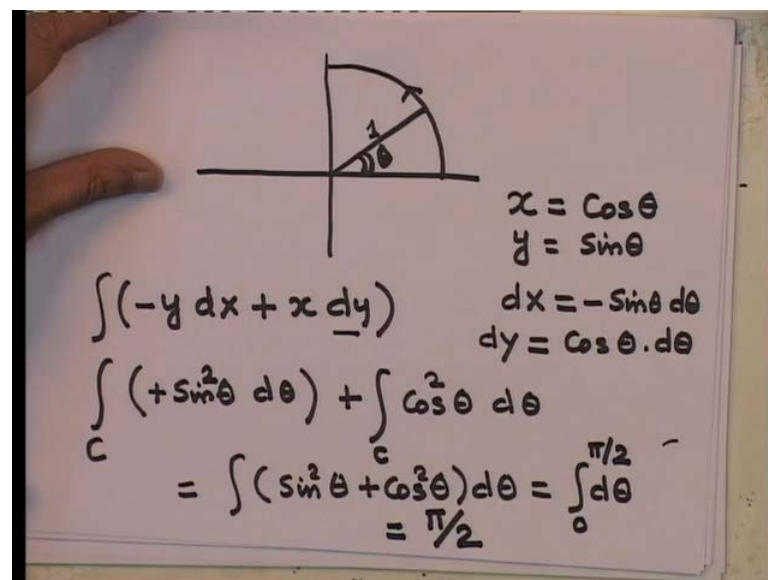 1
θ
x = Cosθ
y = Sinθ
dx = - Sinθ dθ
dy = Cosθ.dθ
∫(-y dx + x dy)
∫_C (+ Sin²θ dθ) + ∫_C Cos²θ dθ
= ∫(Sin²θ + Cos²θ)dθ = ∫₀^{π/2} dθ
= π/2